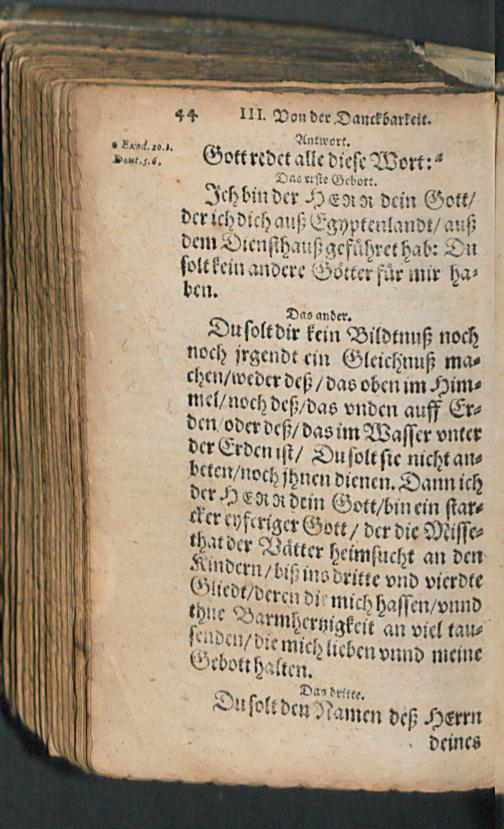 44 III. Von der Danckbarkeit.
Antwort.
* Exod. 20.1.
Deut. 5.6.
Gott redet alle diese Wort:*
Das erste Gebott.
Ich bin der HERR dein Gott/
der ich dich auß Egyptenlandt/auß
dem Diensthauß geführet hab: Du
solt kein andere Götter für mir ha-
ben.
Das ander.
Du solt dir kein Bildtnuß noch
noch jrgendt ein Gleichnuß ma-
chen/weder deß/das oben im Him-
mel/noch deß/das vnden auff Er-
den/oder deß/das im Wasser vnter
der Erden ist/ Du solt sie nicht an-
beten/noch jhnen dienen. Dann ich
der HERR dein Gott/bin ein star-
cker eyferiger Gott/ der die Misse-
that der Vätter heimsucht an den
Kindern/biß ins dritte vnd vierdte
Gliedt/deren die mich hassen/vnnd
thue Barmhertzigkeit an viel tau-
senden/die mich lieben vnnd meine
Gebott halten.
Das dritte.
Du solt den Namen deß HErrn
deines